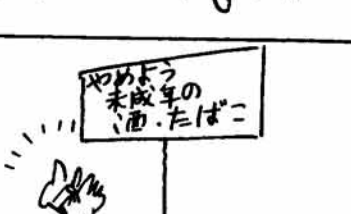 やめよう
未成年の
酒・たばこ